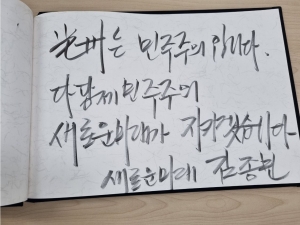 光州는 민주주의 입니다.
다함께 민주주의
새로운미래가 지키겠습니다
새로운미래 김종현